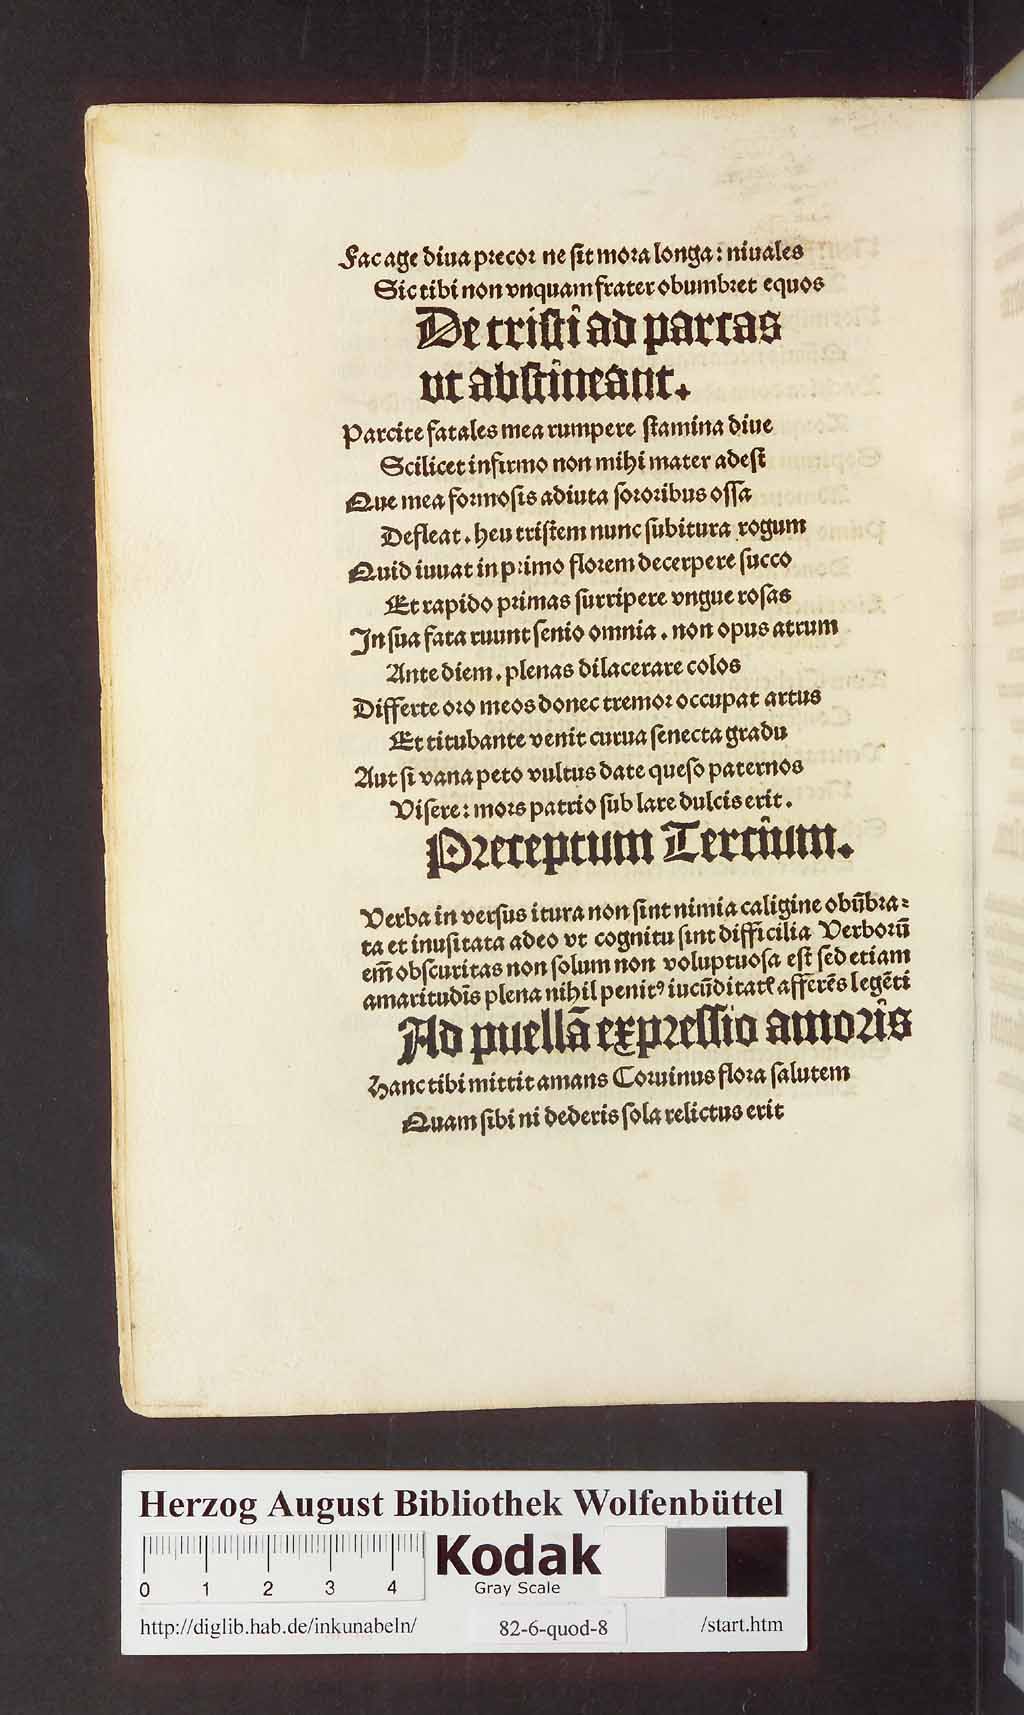 Fac age diua precor ne sit mora longa: niuales
Sic tibi non vnquam frater obumbret equos
De tristi ad parcas
vt abstineant.
Parcite fatales mea rumpere stamina diue
Scilicet infirmo non mihi mater adest
Que mea formosis adiuta sororibus ossa
Defleat. heu tristem nunc subitura rogum
Quid iuuat in primo florem decerpere succo
Et rapido primas surripere vngue rosas
In sua fata ruunt senio omnia. non opus atrum
Ante diem. plenas dilacerare colos
Differte oro meos donec tremor occupat artus
Et titubante venit curua senecta gradu
Aut si vana peto vultus date queso paternos
Visere: mors patrio sub lare dulcis erit.
Preceptum Tercium.
Verba in versus itura non sint nimia caligine obūbra⸗
ta et inusitata adeo vt cognitu sint difficilia Verborū
em̄ obscuritas non solum non voluptuosa est sed etiam
amaritudīs plena nihil penitꝰ iucūditatꝭ afferēs legēti
Ad puellā expressio amoris
Hanc tibi mittit amans Coruinus flora salutem
Quam sibi ni dederis sola relictus erit
Herzog August Bibliothek Wolfenbüttel
0 1 2 3 4
Kodak
Gray Scale
http://diglib.hab.de/inkunabeln/ 82-6-quod-8 /start.htm